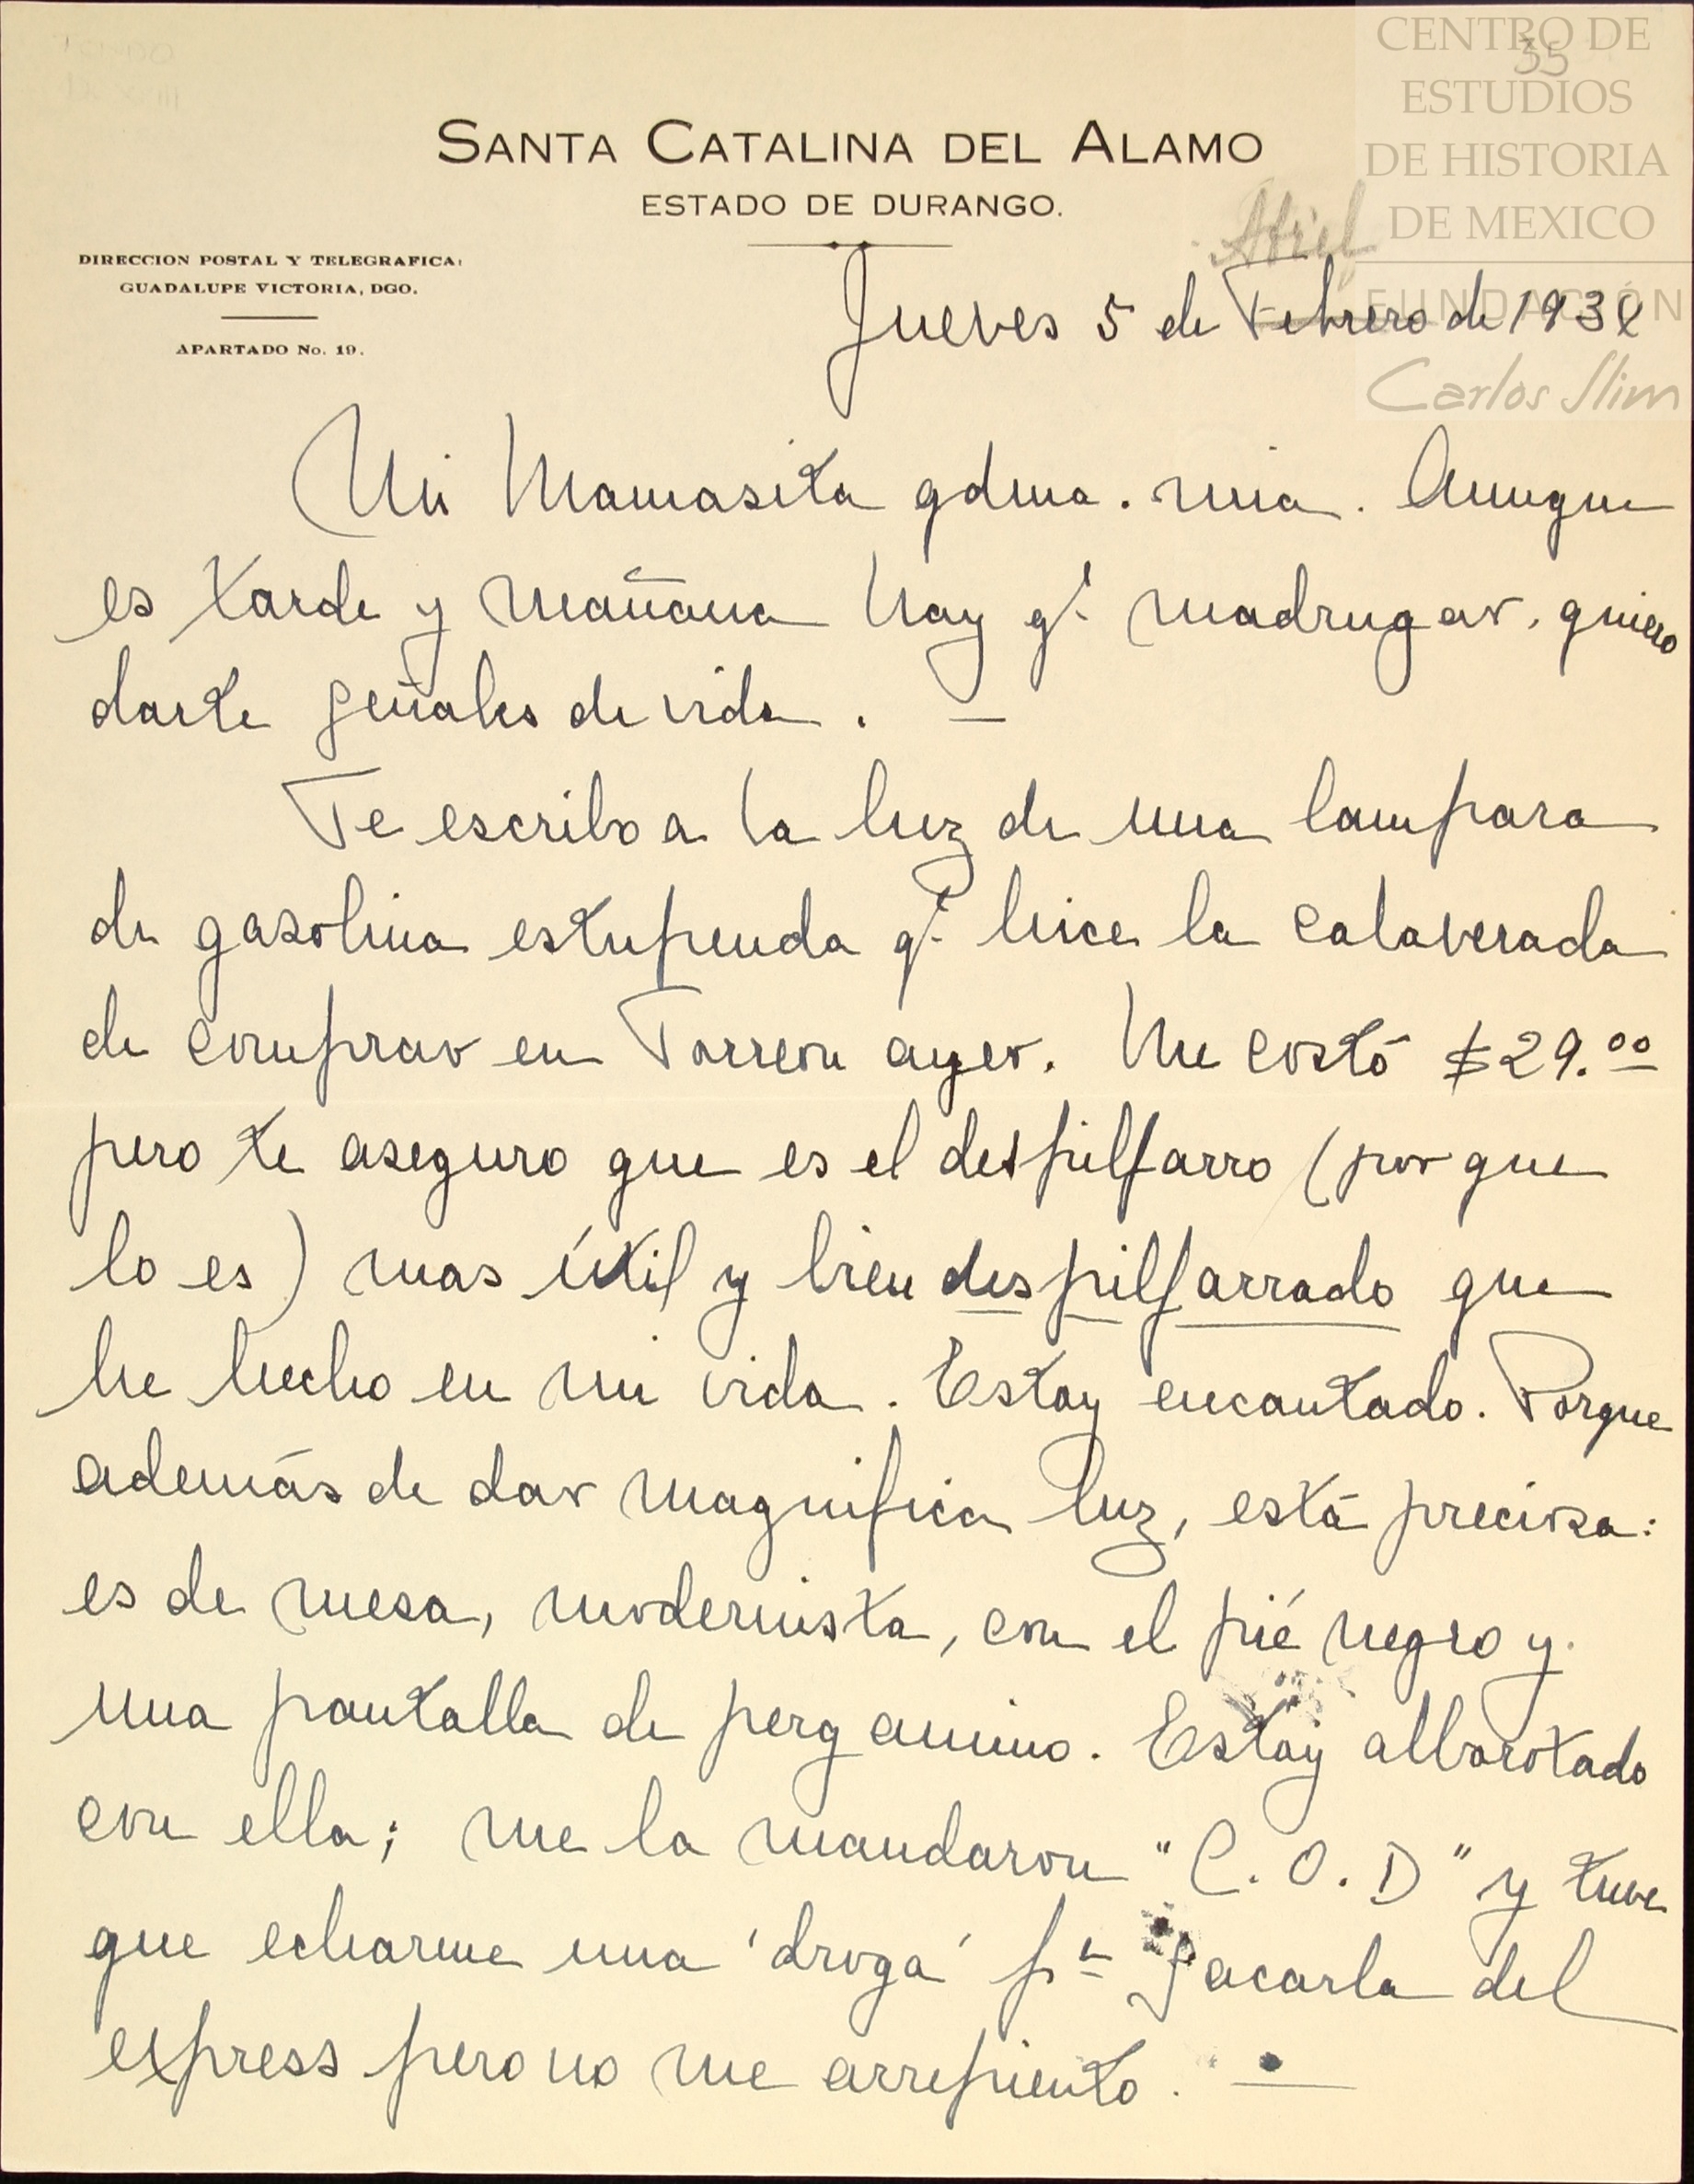 CENTRO DE
ESTUDIOS
DE HISTORIA
DE MEXICO
FUNDACIÓN
Carlos Slim
35
SANTA CATALINA DEL ALAMO
ESTADO DE DURANGO.
DIRECCION POSTAL Y TELEGRAFICA:
GUADALUPE VICTORIA, DGO.
APARTADO No. 19.
Abril
Jueves 5 de Febrero de 193
Mi Mamasita qdma. mia. Aunque
es tarde y mañana hay q' madrugar, quiero
darte señales de vida. —
Te escribo a la luz de una lampara
de gasolina estupenda q' hice la calaverada
de comprar en Torreon ayer. Me costó $29.00
pero te aseguro que es el despilfarro (porque
lo es) mas útil y bien despilfarrado que
he hecho en mi vida. Estoy encantado. Porque
además de dar magnifica luz, está preciosa:
es de mesa, modernista, con el pié negro y
una pantalla de pergamino. Estoy alborotado
con ella; me la mandaron "C.O.D" y tuve
que echarme una 'droga' pa sacarla del
express pero no me arrepiento. —